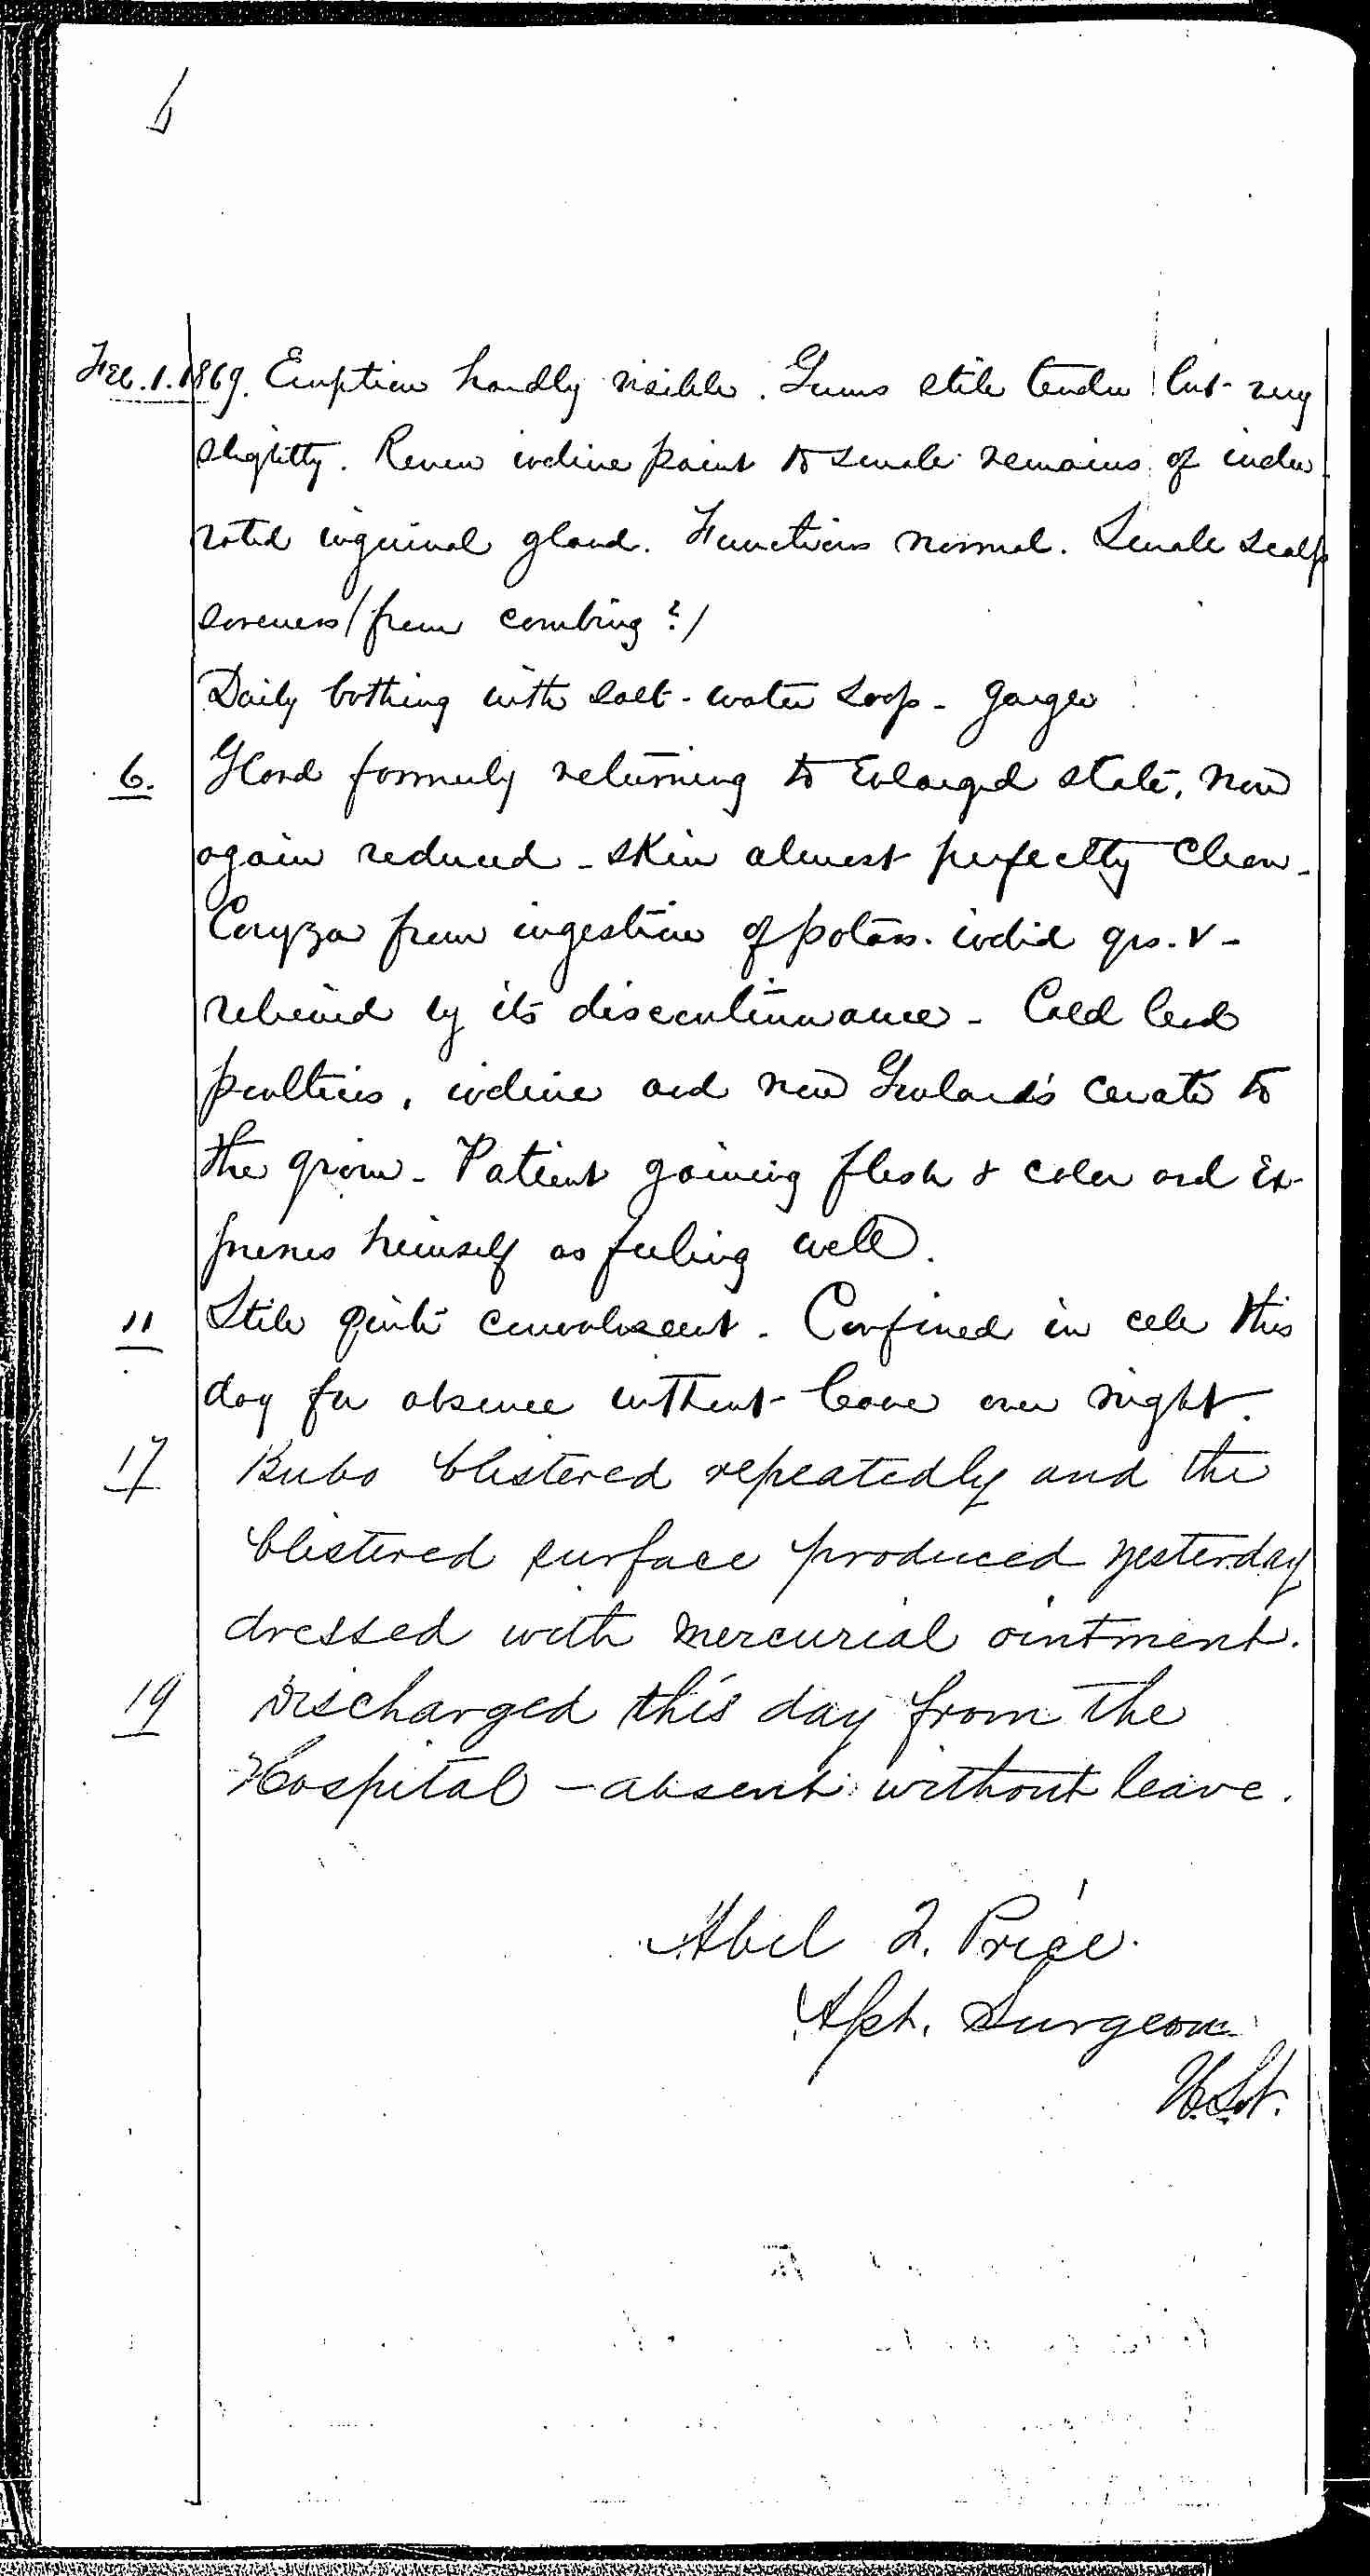 6
Feb. 1. 1869. Eruption hardly visible. Gums still tender but very
slightly. Renew iodine paint to small remains of indu-
rated inguinal gland. Functions normal. Small scalp
soreness (from combing?)
Daily bathing with salt-water soap - gargle
6. Gland formerly returning to enlarged state, now
again reduced - skin almost perfectly clean -
Coryza from ingestion of potass. iodid grs. v -
relieved by its discontinuance - Cold lead
poultices, iodine and now Goulard's cerate to
the groin - Patient gaining flesh & color and ex-
presses himself as feeling well.
11 Still quite convalescent. Confined in cell this
day for absence without leave over night.
17 Bubo blistered repeatedly and the
blistered surface produced yesterday
dressed with mercurial ointment.
19 Discharged this day from the
Hospital - absent without leave.
Abel F. Price.
Asst. Surgeon
U.S.N.